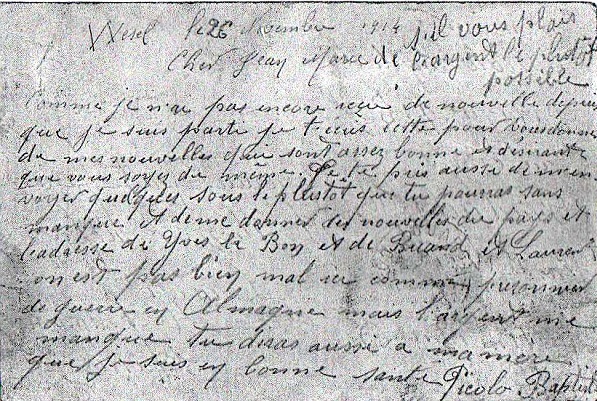 Wesel le 26 Novembre 1914
s'il vous plais
Cher Jean Marie de l'argent le plutot
possible
Comme je n'ai pas encore reçu de nouvelle depuis
que je suis partie je t'ecris cette pour vous donner
de mes nouvelles qui sont assez bonne et désirant
que vous soyez du meme. Je te pris aussi de m'en
voyer quelques sous le plustot que tu pourras sans
manque et de me donner des nouvelles du pays et
l'adresse de Yves le Bon et de Briand et Laurent
on est pas bien mal ici comme prisonnier
de guerre en Almagne mais l'argent me
manque tu diras aussi a ma mere
que je suis en bonne sante Picolo Baptist